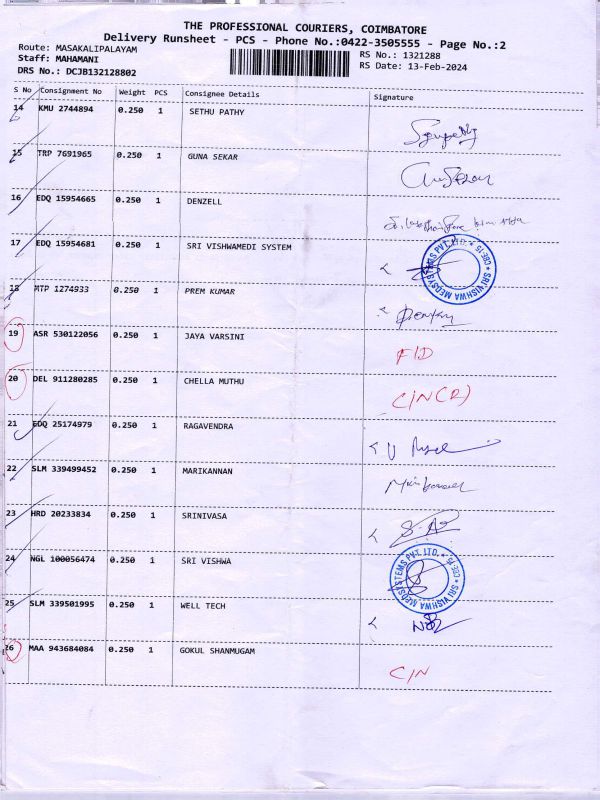 THE PROFESSIONAL COURIERS, COIMBATORE
Delivery Runsheet - PCS - Phone No.:0422-3505555 - Page No.:2
Route: MASAKALIPALAYAM
RS No.: 1321288
Staff: MAHAMANI
RS Date: 13-Feb-2024
DRS No.: DCJB132128802
S No Consignment No Weight PCS Consignee Details Signature
14 KMU 2744894 0.250 1 SETHU PATHY
15 TRP 7691965 0.250 1 GUNA SEKAR
16 EDQ 15954665 0.250 1 DENZELL
17 EDQ 15954681 0.250 1 SRI VISHWAMEDI SYSTEM
SRI VISHWA MEDSYSTEMS PVT. LTD. CBE-15
18 MTP 1274933 0.250 1 PREM KUMAR
19 ASR 530122056 0.250 1 JAYA VARSINI F/D
20 DEL 911280285 0.250 1 CHELLA MUTHU C/N(R)
21 EDQ 25174979 0.250 1 RAGAVENDRA
22 SLM 339499452 0.250 1 MARIKANNAN
23 HRD 20233834 0.250 1 SRINIVASA
24 NGL 100056474 0.250 1 SRI VISHWA
SRI VISHWA MEDSYSTEMS PVT. LTD. CBE-15
25 SLM 339501995 0.250 1 WELL TECH
26 MAA 943684084 0.250 1 GOKUL SHANMUGAM C/N